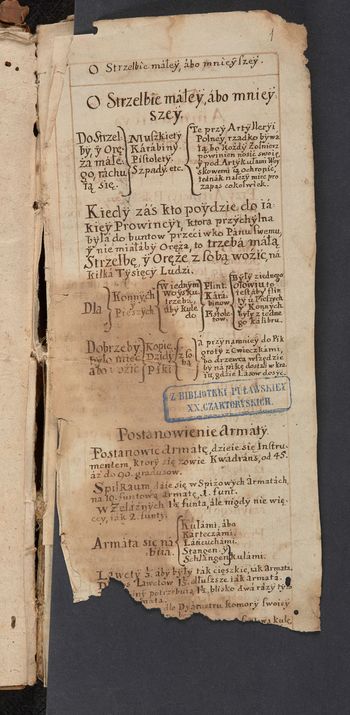 1
O Strzelbie małey, ábo mnieyszey.
O Strzelbie małey, ábo mniey
szey.
Do Strzel-
by, y Orę-
żá máłe-
go, ráchu
ią się.
Muszkiety
Károbiny
Pistolety
Szpády. etc.
Te przy Artylleryi
Polney rzadko bywa
ią, bo każdy Żołnierz
powinien nosić swoię
y pod Artykułami Woy
skowemi ią ochronić,
iednak należy mieć pro
zapas cokolwiek.
Kiedy záś kto poydzie do iá
kiey Prowincyi, ktora przychylna
była do buntow przeciwko Pánu swemu,
y nie miałaby Oręża, to trzebá małą
Strzelbę, y Oręże z sobą wozić, na
kilká Tysięcy Ludzi.
Dla
Konnych
Pieszych
W iednym
Woysku
trzebá,
áby kule
do
Flint
Kára-
binow
Pistole-
tow.
Były z iednego
ołowiu, to
iest áby flin
ty u Pieszych
y Konnych
były z iedne
go kalibru.
Dobrze by
było mieć
ábo wozić
Kopie,
Dzidy
Piki
z so
bą
A przynamniey do Pik
groty z Cwieczkámi,
bo drzewcá wszędzie
by ná piki dostał w kra
iu, gdzie Lásow dosyc.
Z BIBLIOTEKI PUŁAWSKIEY
XX. CZARTORYSKICH.
Postánowienie Armaty.
Postánowić Armatę, dzieie się Instru-
mentem, ktory się zowie Kwadrans, od 45.
áż do 90. gradusow.
Spilraum daie się w Spiżowych armatach,
na 10. funtową armatę 1. funt.
w Żelaznych 1½ funta, ale nigdy nie wię-
cey, iák 2. funty.
Armata się ná-
biia.
Kulámi, ábo
Karteczámi,
Láncuchámi.
Stangen y
Schlangen kulámi.
Láwety áby były ták cięszkie, iák Armata.
Láwetow dłuższe iák armata.
potrzebuią 1½, blisko dwá rázy ty
mata.
dło Dyámetru komory swoiey